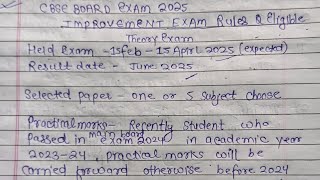 CBSE BOARD EXAM 2025
IMPROVEMENT EXAM RULES & Eligible
Theory Exam
Held Exam - 15feb - 15 April 2025 (expected)
Result date - June 2025
Selected paper - one or 5 subject choose
Practical marks - Recently Student who
passed in main board exam 2024 in academic year
2023-24, practical marks will be
carried forward otherwise before 2024